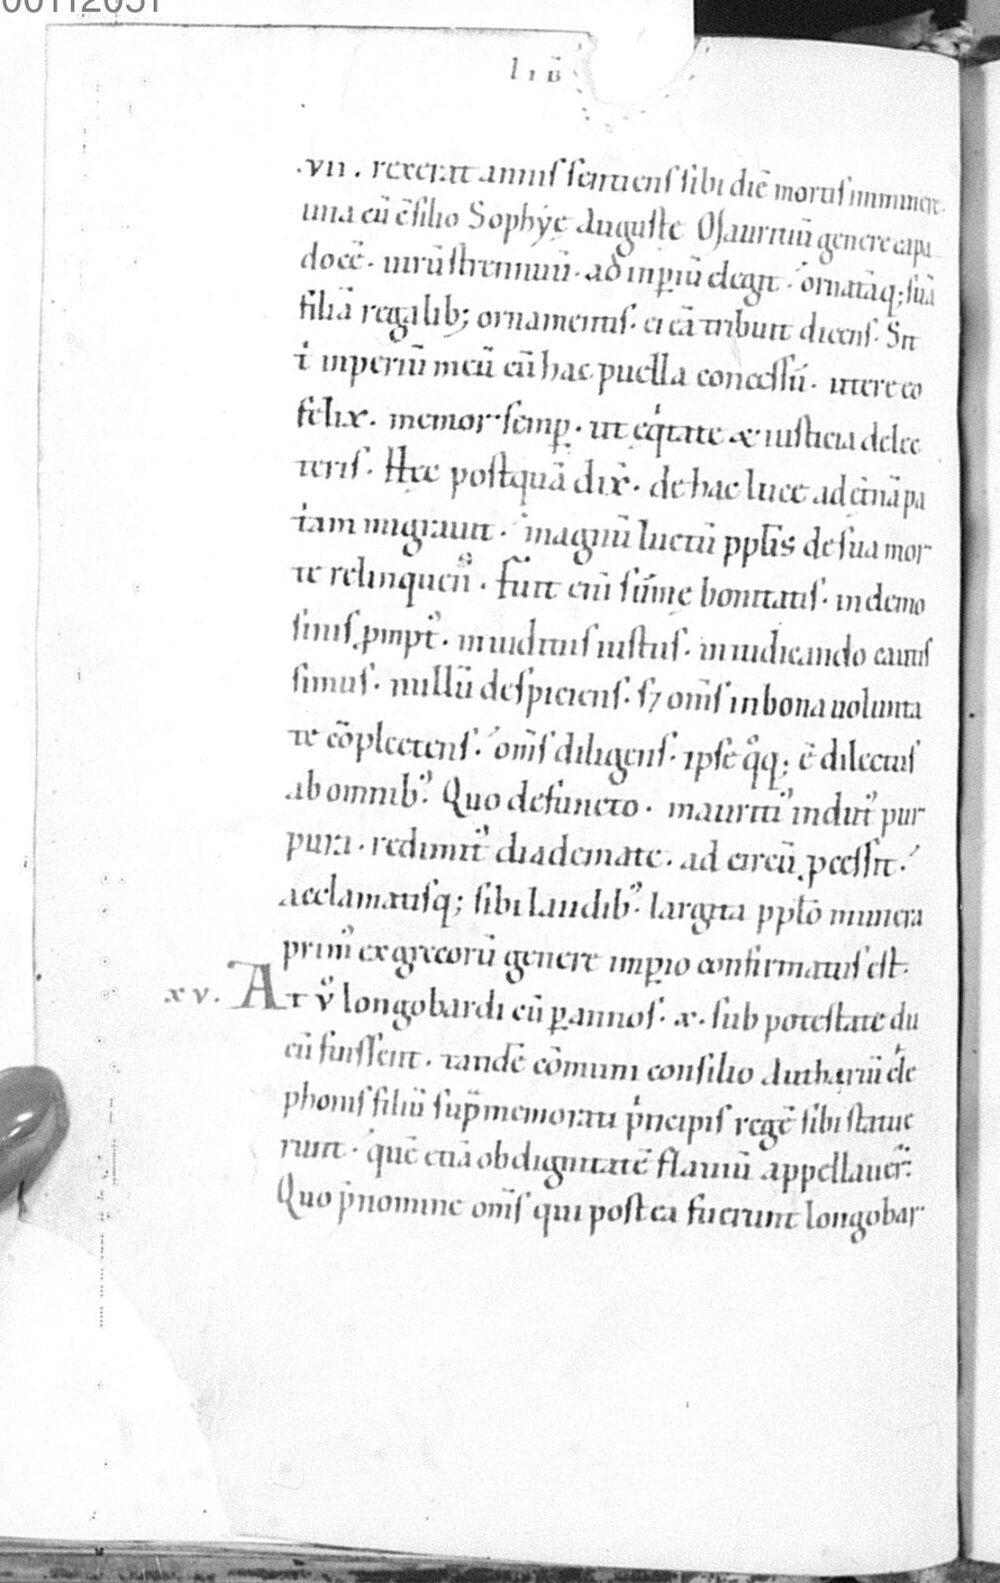 00112051
lib̄
.vii. rexerat annis sentiens sibi diē mortis imminere.
una cū c̄silio Sophyę Auguste Mauritiū genere capa
docē. uirū strennuū. ad inp̱iū elegit. ornatāq; suā
filiā regalib; ornamentis. ei eā tribuit dicens. Sit
t̍ inperiū meū cū hac puella concessū. utere eo
felix. memor semp̱. ut eq̍tate & iusticia delec
teris. Hec postquā dix̄. de hac luce ad et̄nā pa
t̍am migrauit. magnū luctū pplis de sua mor
te relinquens. Fuit eni sūmę bonitatis. in elemo
sinis p̱mptꝰ. in iuditiis iustus. in iudicando cautis
simus. nullū despiciens. s; om̄s in bona uolunta
te cōplectens. om̄s diligens. ipse q̊q; ē dilectus
ab omnibꝰ. Quo defuncto. mauritiꝰ indutꝰ pur
pura. redimitꝰ diademate. ad circū p̱cessit.
acclamatisq; sibi laudibꝰ. largita pplo munera
primꝰ ex grecorū genere imp̱io confirmatus est.
xv. At v̊ longobardi cū p̱ annos. x. sub potestate du
cū fuissent. tandē cōmuni consilio Authariū cle
phonis filiū sup̄memorati p̍ncipis regē sibi statue
runt. quē etiā ob dignitatē flauiū appellauer̄.
Quo p̄nomine om̄s qui postea fuerunt longobar